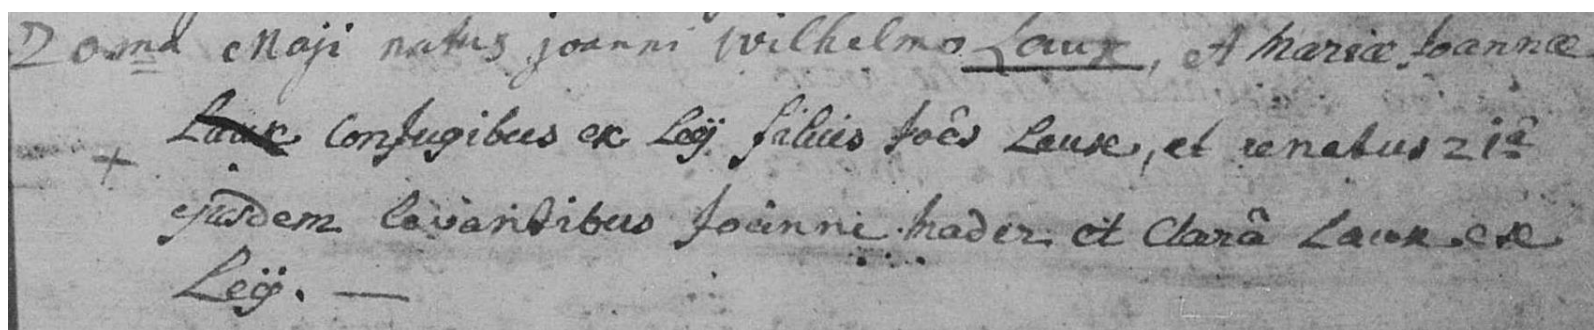 20ma Maji natus joanni wilhelmo Laux, et Mariæ Joannæ
Laux Conjugibus ex Leÿ filius Joês Laux, et renatus 21â
ejusdem levantibus Joanne Mader et Clarâ Laux ex
Leÿ. —